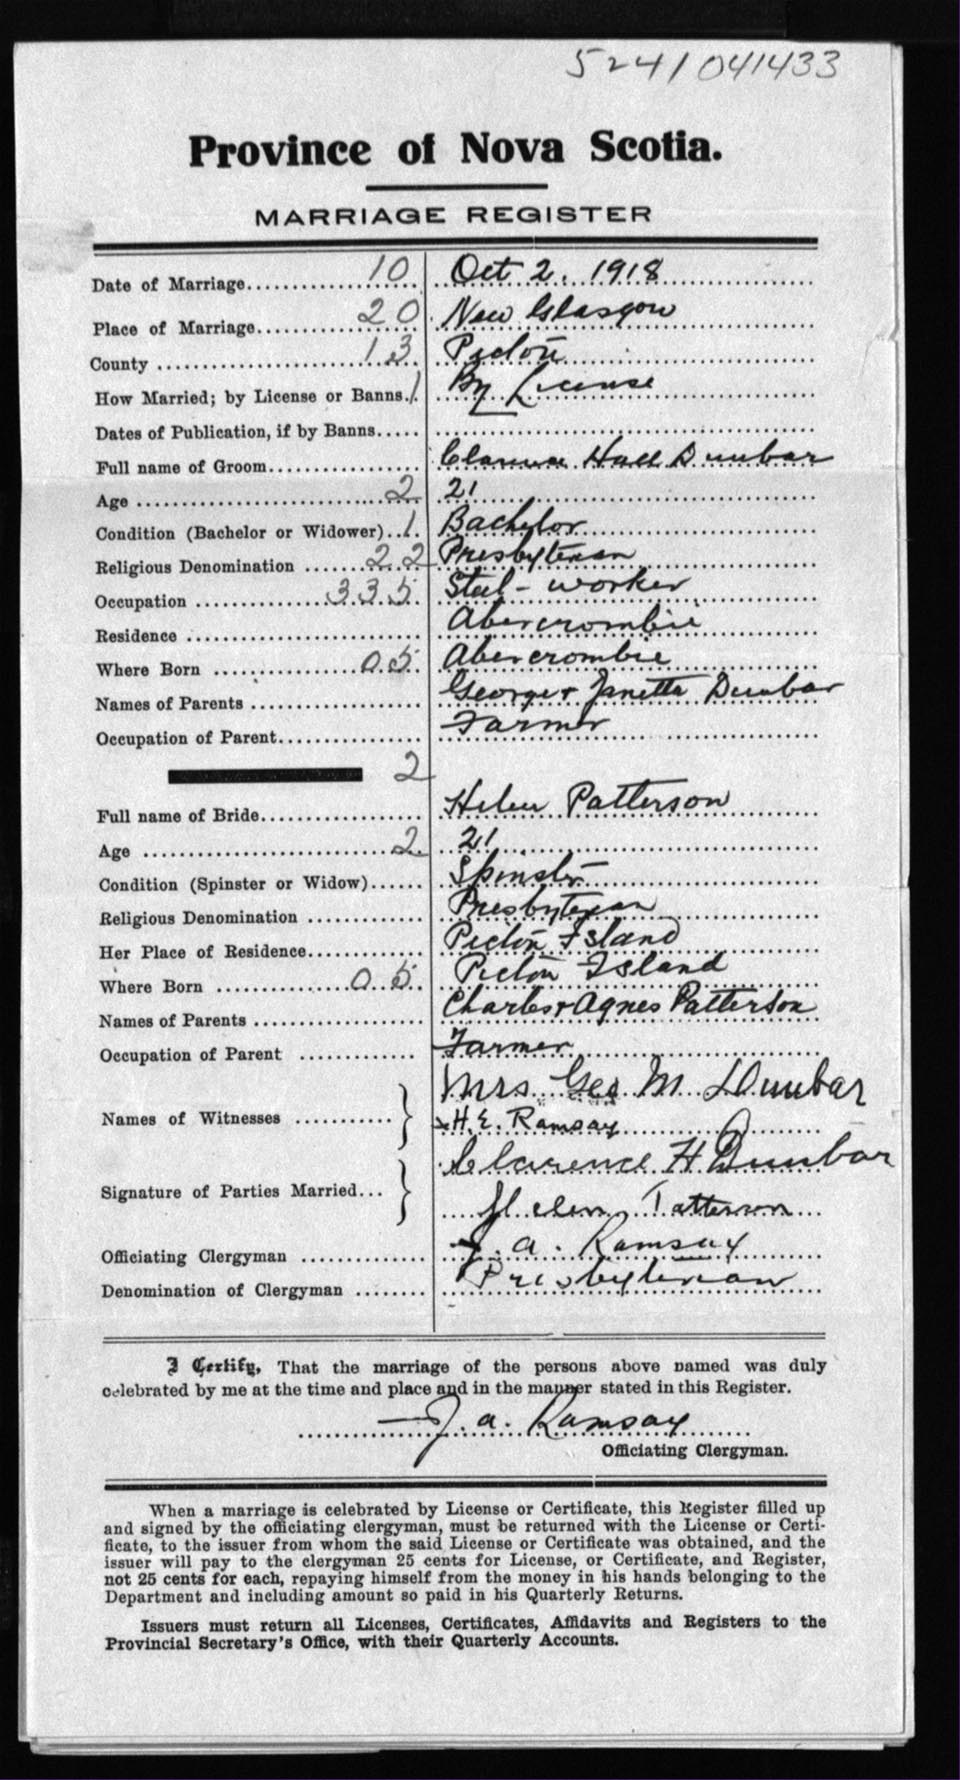 5241041433
Province of Nova Scotia.
MARRIAGE REGISTER
Date of Marriage 10 Oct 2, 1918
Place of Marriage 20 New Glasgow
County 13 Pictou
How Married; by License or Banns 1 By License
Dates of Publication, if by Banns
Full name of Groom Clarence Hall Dunbar
Age 2 21
Condition (Bachelor or Widower) 1 Bachelor
Religious Denomination 22 Presbyterian
Occupation 335 Steel-worker
Residence Abercrombie
Where Born 05 Abercrombie
Names of Parents George + Janetta Dunbar
Occupation of Parent Farmer
2
Full name of Bride Helen Patterson
Age 2 21
Condition (Spinster or Widow) Spinster
Religious Denomination Presbyterian
Her Place of Residence Pictou Island
Where Born 05 Pictou Island
Names of Parents Charles + Agnes Patterson
Occupation of Parent Farmer
Names of Witnesses } Mrs. Geo M. Dunbar
H. E. Ramsay
Signature of Parties Married } Clarence H Dunbar
Helen Patterson
Officiating Clergyman J. A. Ramsay
Denomination of Clergyman Presbyterian
I Certify, That the marriage of the persons above named was duly
celebrated by me at the time and place and in the manner stated in this Register.
J. A. Ramsay
Officiating Clergyman.
When a marriage is celebrated by License or Certificate, this Register filled up
and signed by the officiating clergyman, must be returned with the License or Certi-
ficate, to the issuer from whom the said License or Certificate was obtained, and the
issuer will pay to the clergyman 25 cents for License, or Certificate, and Register,
not 25 cents for each, repaying himself from the money in his hands belonging to the
Department and including amount so paid in his Quarterly Returns.
Issuers must return all Licenses, Certificates, Affidavits and Registers to the
Provincial Secretary's Office, with their Quarterly Accounts.